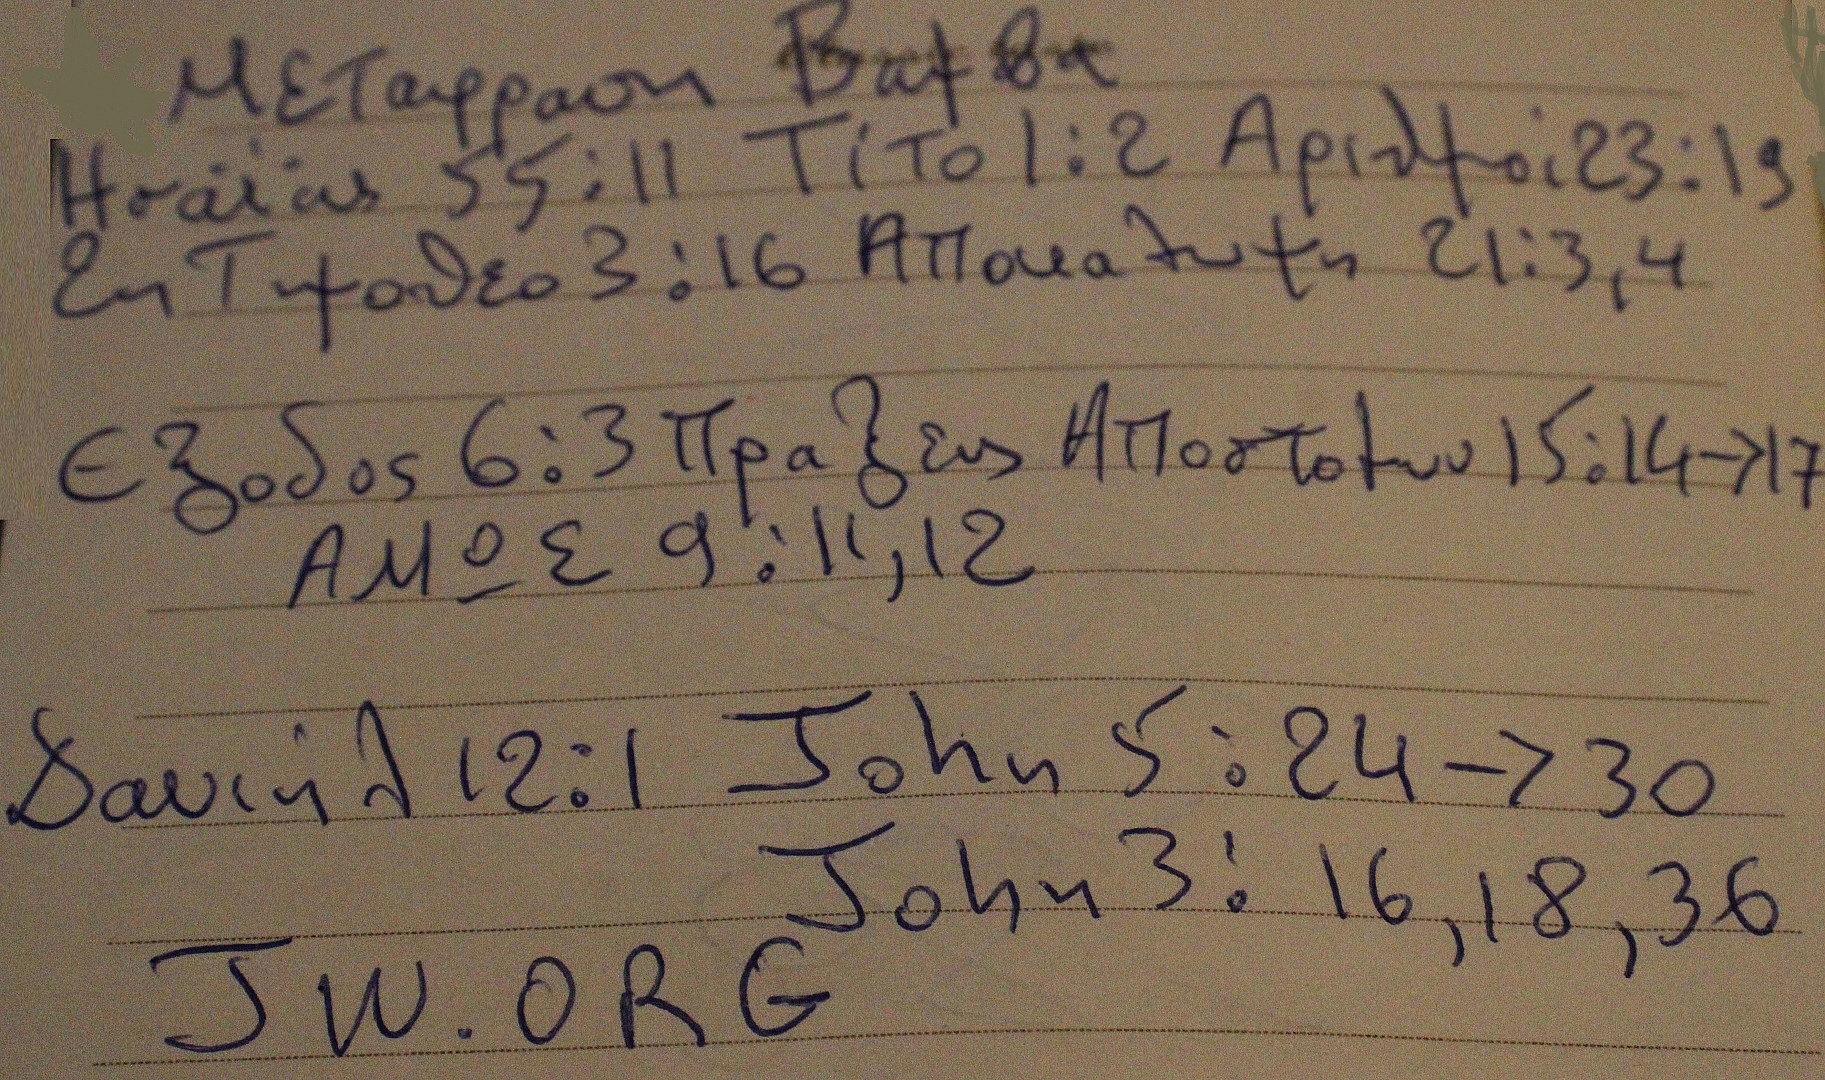 Μεταφραση Βαμβα
Ησαΐας 55:11 Τίτο 1:2 Αριθμοί 23:19
2η Τιμοθεο 3:16 Αποκαλυψη 21:3,4
Εξοδος 6:3 Πραξεις Αποστολων 15:14→17
ΑΜΩΣ 9:11,12
Δανιήλ 12:1 John 5:24→30
John 3:16,18,36
JW.ORG